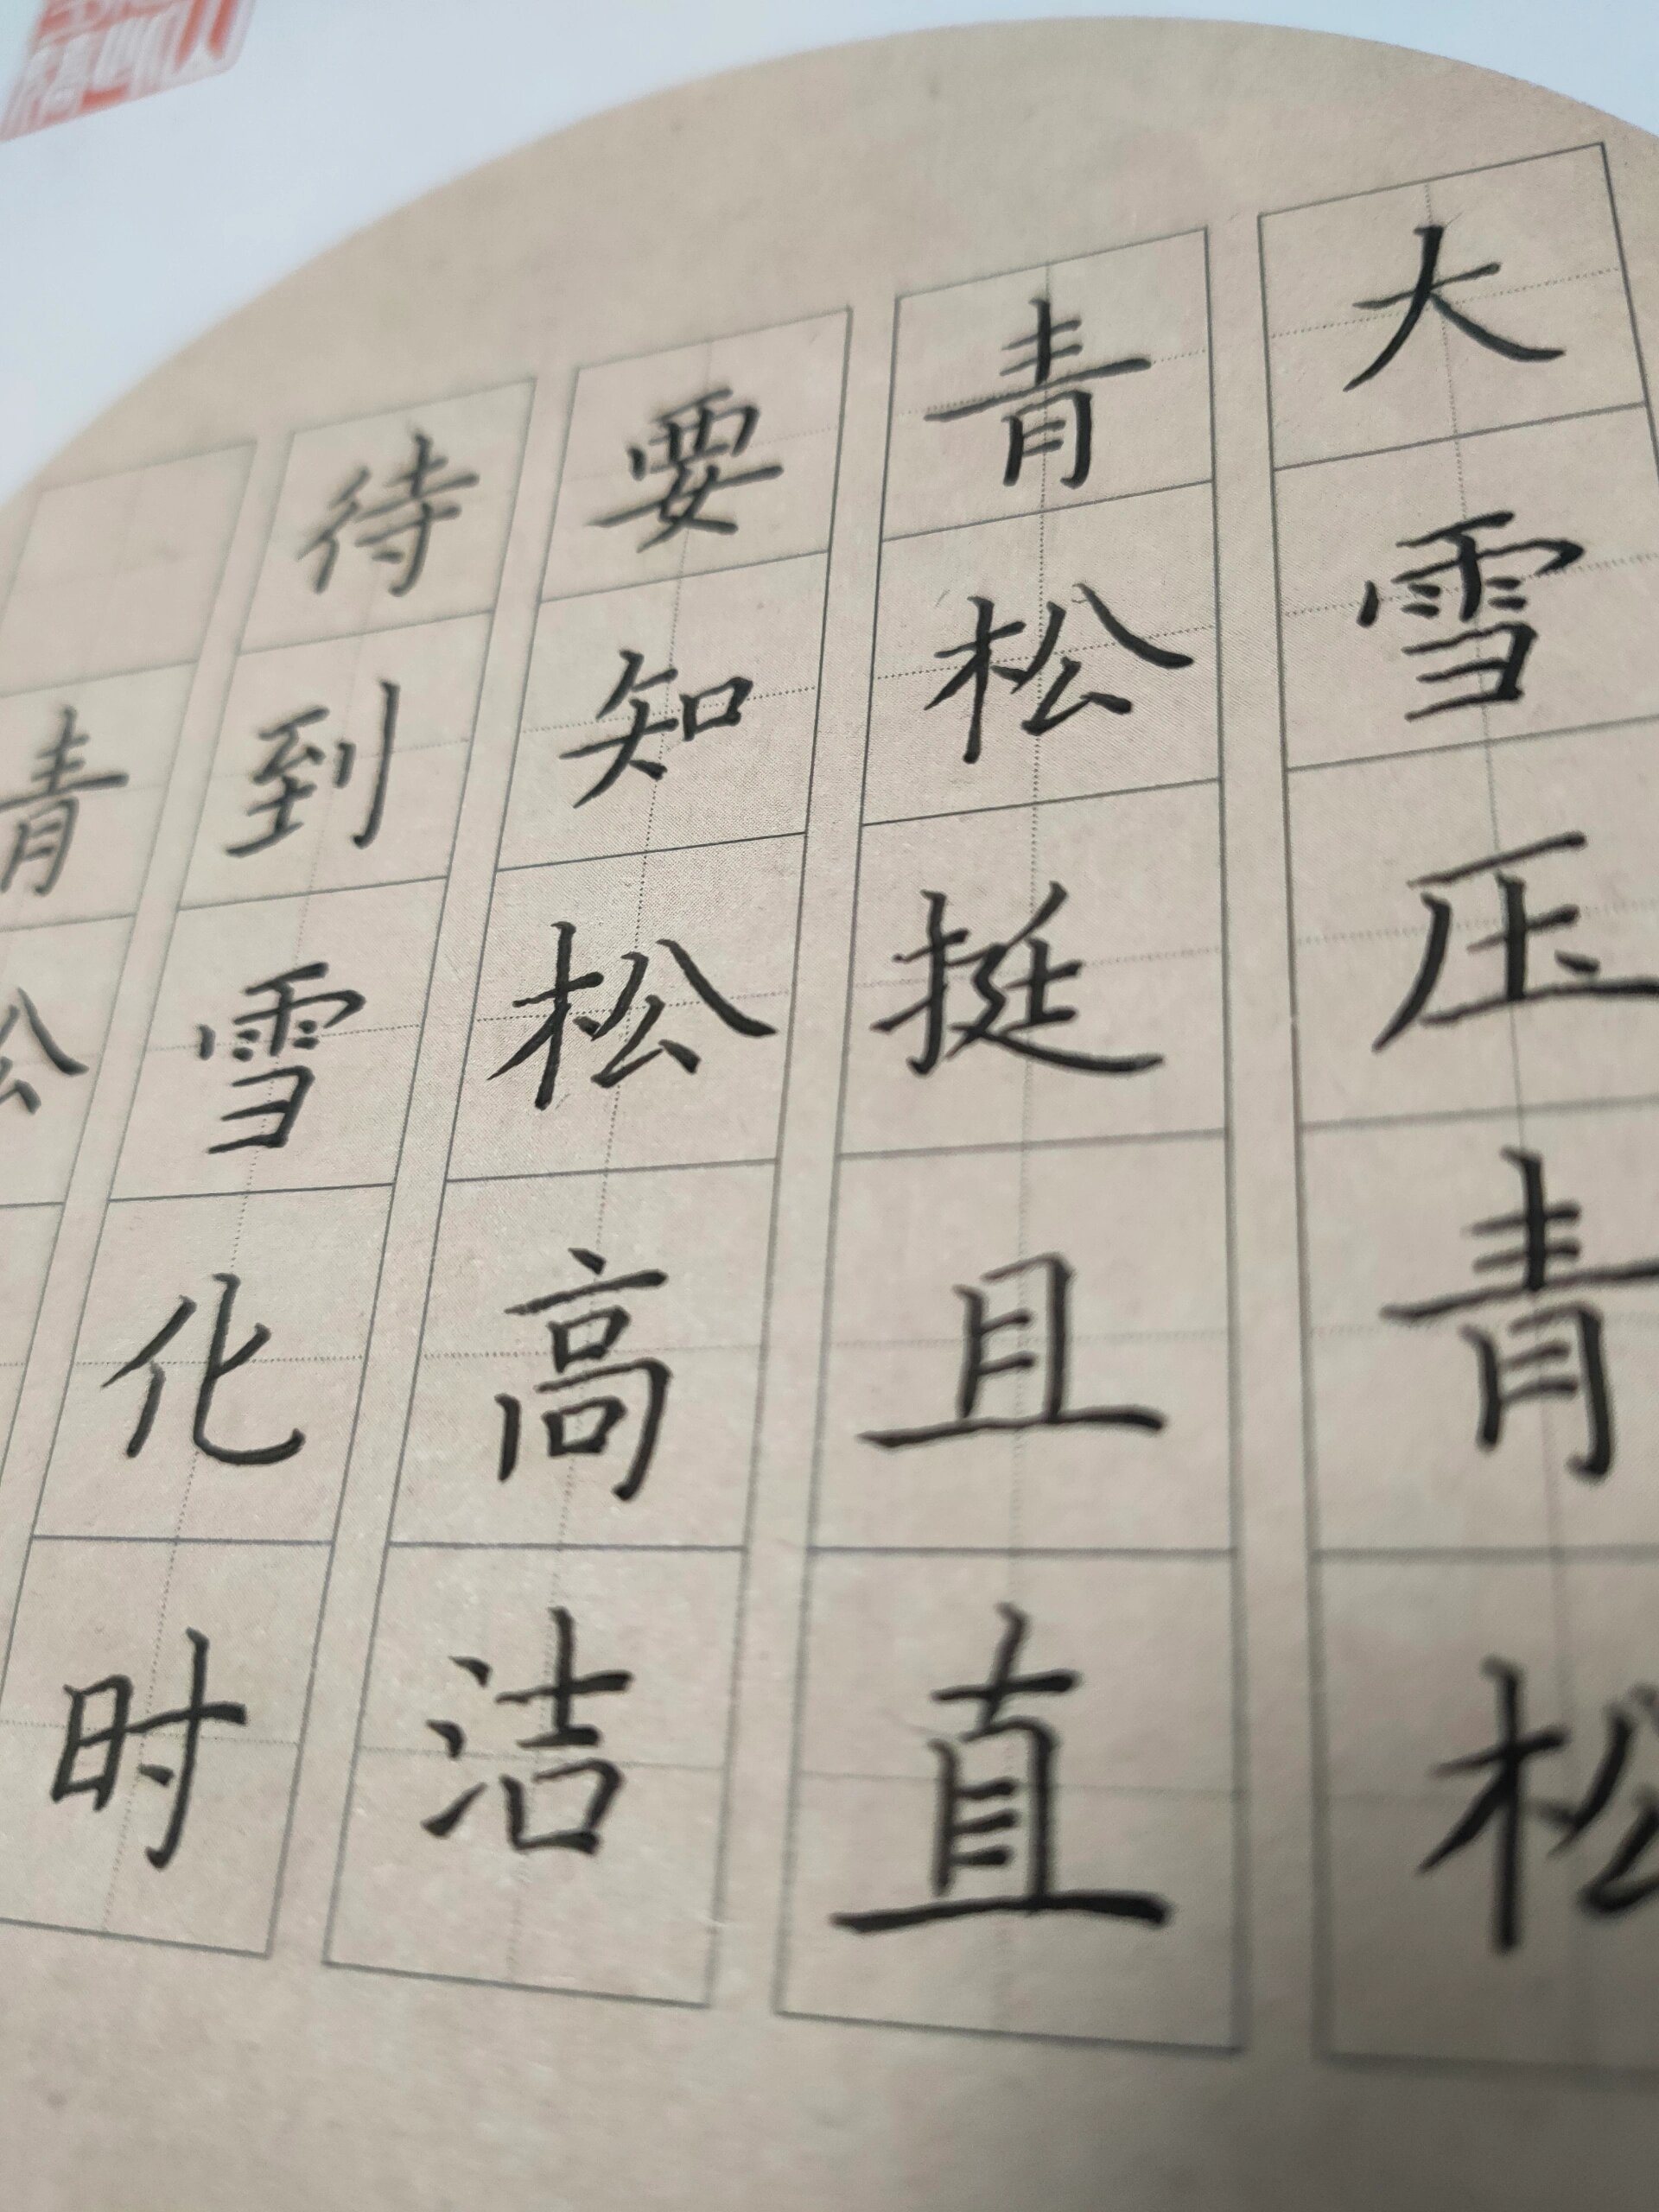 大雪压青松
青松挺且直
要知松高洁
待到雪化时
青松